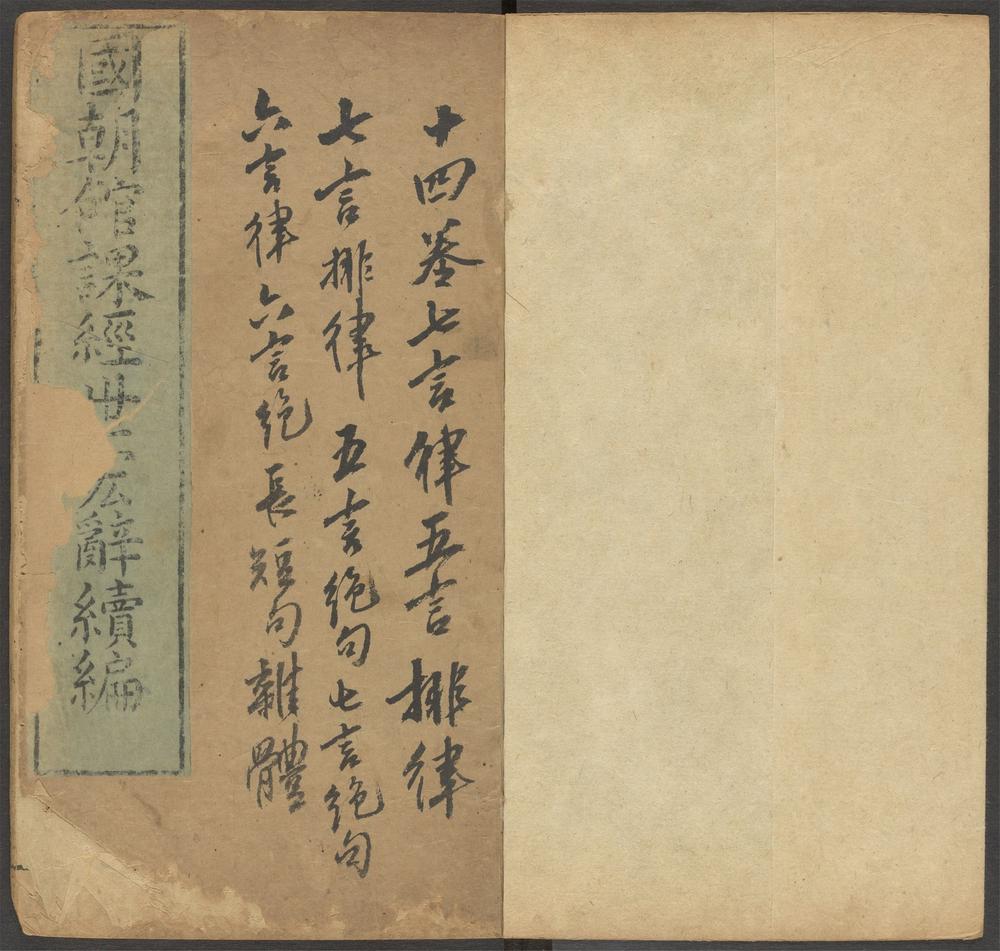 十四卷七言律五言排律
七言排律 五言絶句七言絶句
六言律 六言絶 長短句雜體
國朝館課經世宏辭續編